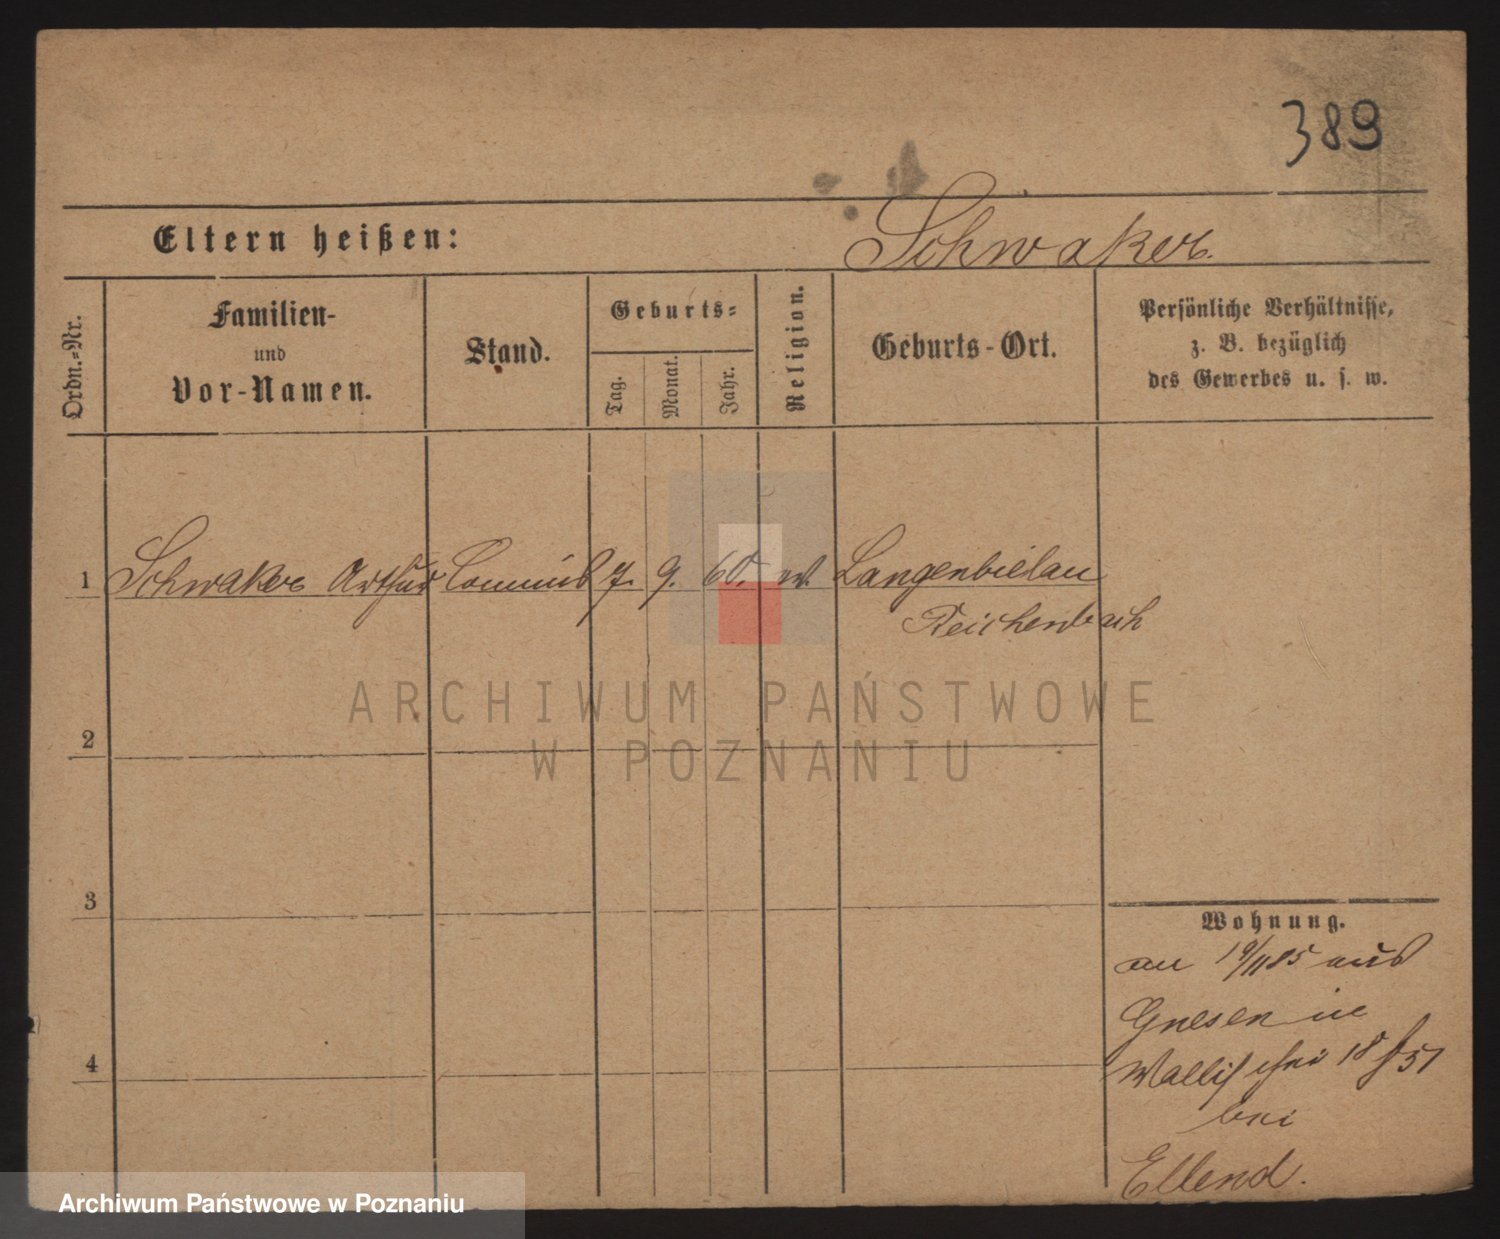 389
Eltern heißen:
Schwaker.
Ordn.-Nr.
Familien-
und
Vor-Namen.
Stand.
Geburts-
Tag.
Monat.
Jahr.
Religion.
Geburts-Ort.
Persönliche Verhältnisse,
z. B. bezüglich
des Gewerbes u. s. w.
1 Schwaker Arthur Commis 7. 9. 60. Langenbielau
Reichenbach
ARCHIWUM PAŃSTWOWE
W POZNANIU
2
3
4
Wohnung.
am 19/11 85 aus
Gnesen in
Wallischei
bei
Ellend.
Archiwum Państwowe w Poznaniu